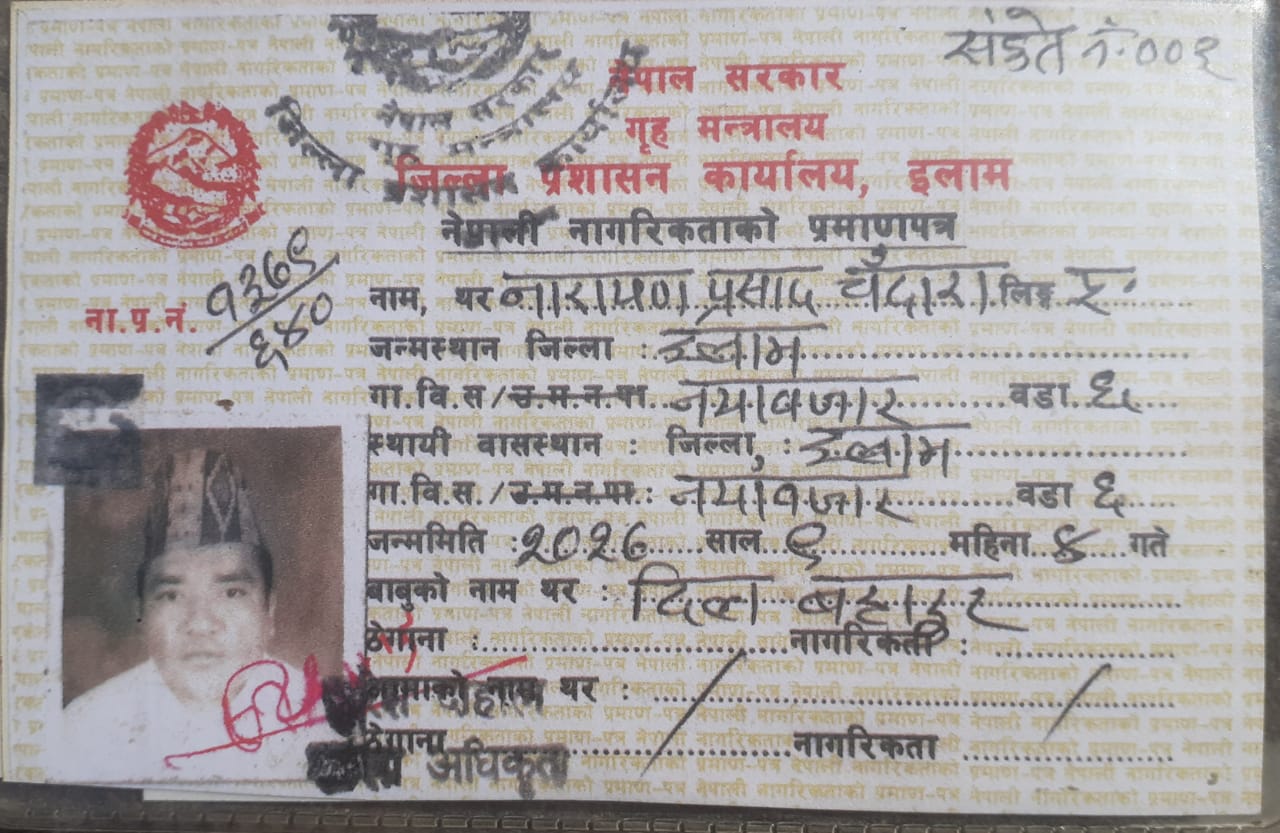 संकेत नं. ००१
नेपाल सरकार
गृह मन्त्रालय
जिल्ला प्रशासन कार्यालय, इलाम
नेपाल सरकार
गृह मन्त्रालय
जिल्ला प्रशासन कार्यालय
नेपाली नागरिकताको प्रमाणपत्र
ना.प्र.नं. १३६९/६४०
नाम, थर नारायण प्रसाद लिङ्ग
जन्मस्थान जिल्ला : इलाम
गा.वि.स/उ.म.न.पा. नयाँबजार वडा ६
स्थायी वासस्थान : जिल्ला, : इलाम
गा.वि.स./उ.म.न.पा.: नयाँबजार वडा ६
जन्ममिति : २०२६ साल ९ महिना ४ गते
बाबुको नाम थर : दिल बहादुर
ठेगाना : नागरिकता :
नाम थर :
ठेगाना नागरिकता
अधिकृत